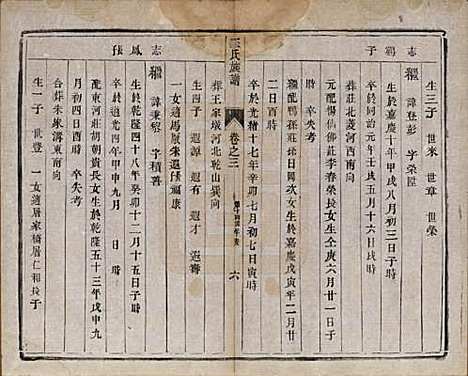 生三子 世米 世章 世榮
志鶴子
諱登彭 字榮屋
生於嘉慶十年甲戌八月初三日子時
卒於同治元年壬戌五月十六日戌時
葬莊北菱河西南向
元配惕仙佛莊李春榮長女生於仝庚六月廿一日
時 卒失考
繼配鴨孫莊 日岡次女生於嘉慶戊寅年二月廿
二日酉時
卒於光緒十七年辛卯七月初七日寅時
葬王家墩河北乾山巽向
王氏族譜
卷之三
六
生四子 遐譚 遐有 遐才 遐壽
一女適馬厰朱遐 福康
志鳳長子
諱秉 字積善
生於乾隆四十八年癸卯十二月十五日子時
卒於道光四年甲申九月 日 時
配東河莊胡朝貴長女生於乾隆五十三年戊申九
月初四日時 卒失考
合葬朱家溝東南向
生一子 世登 一女適居家橋居仁和長子